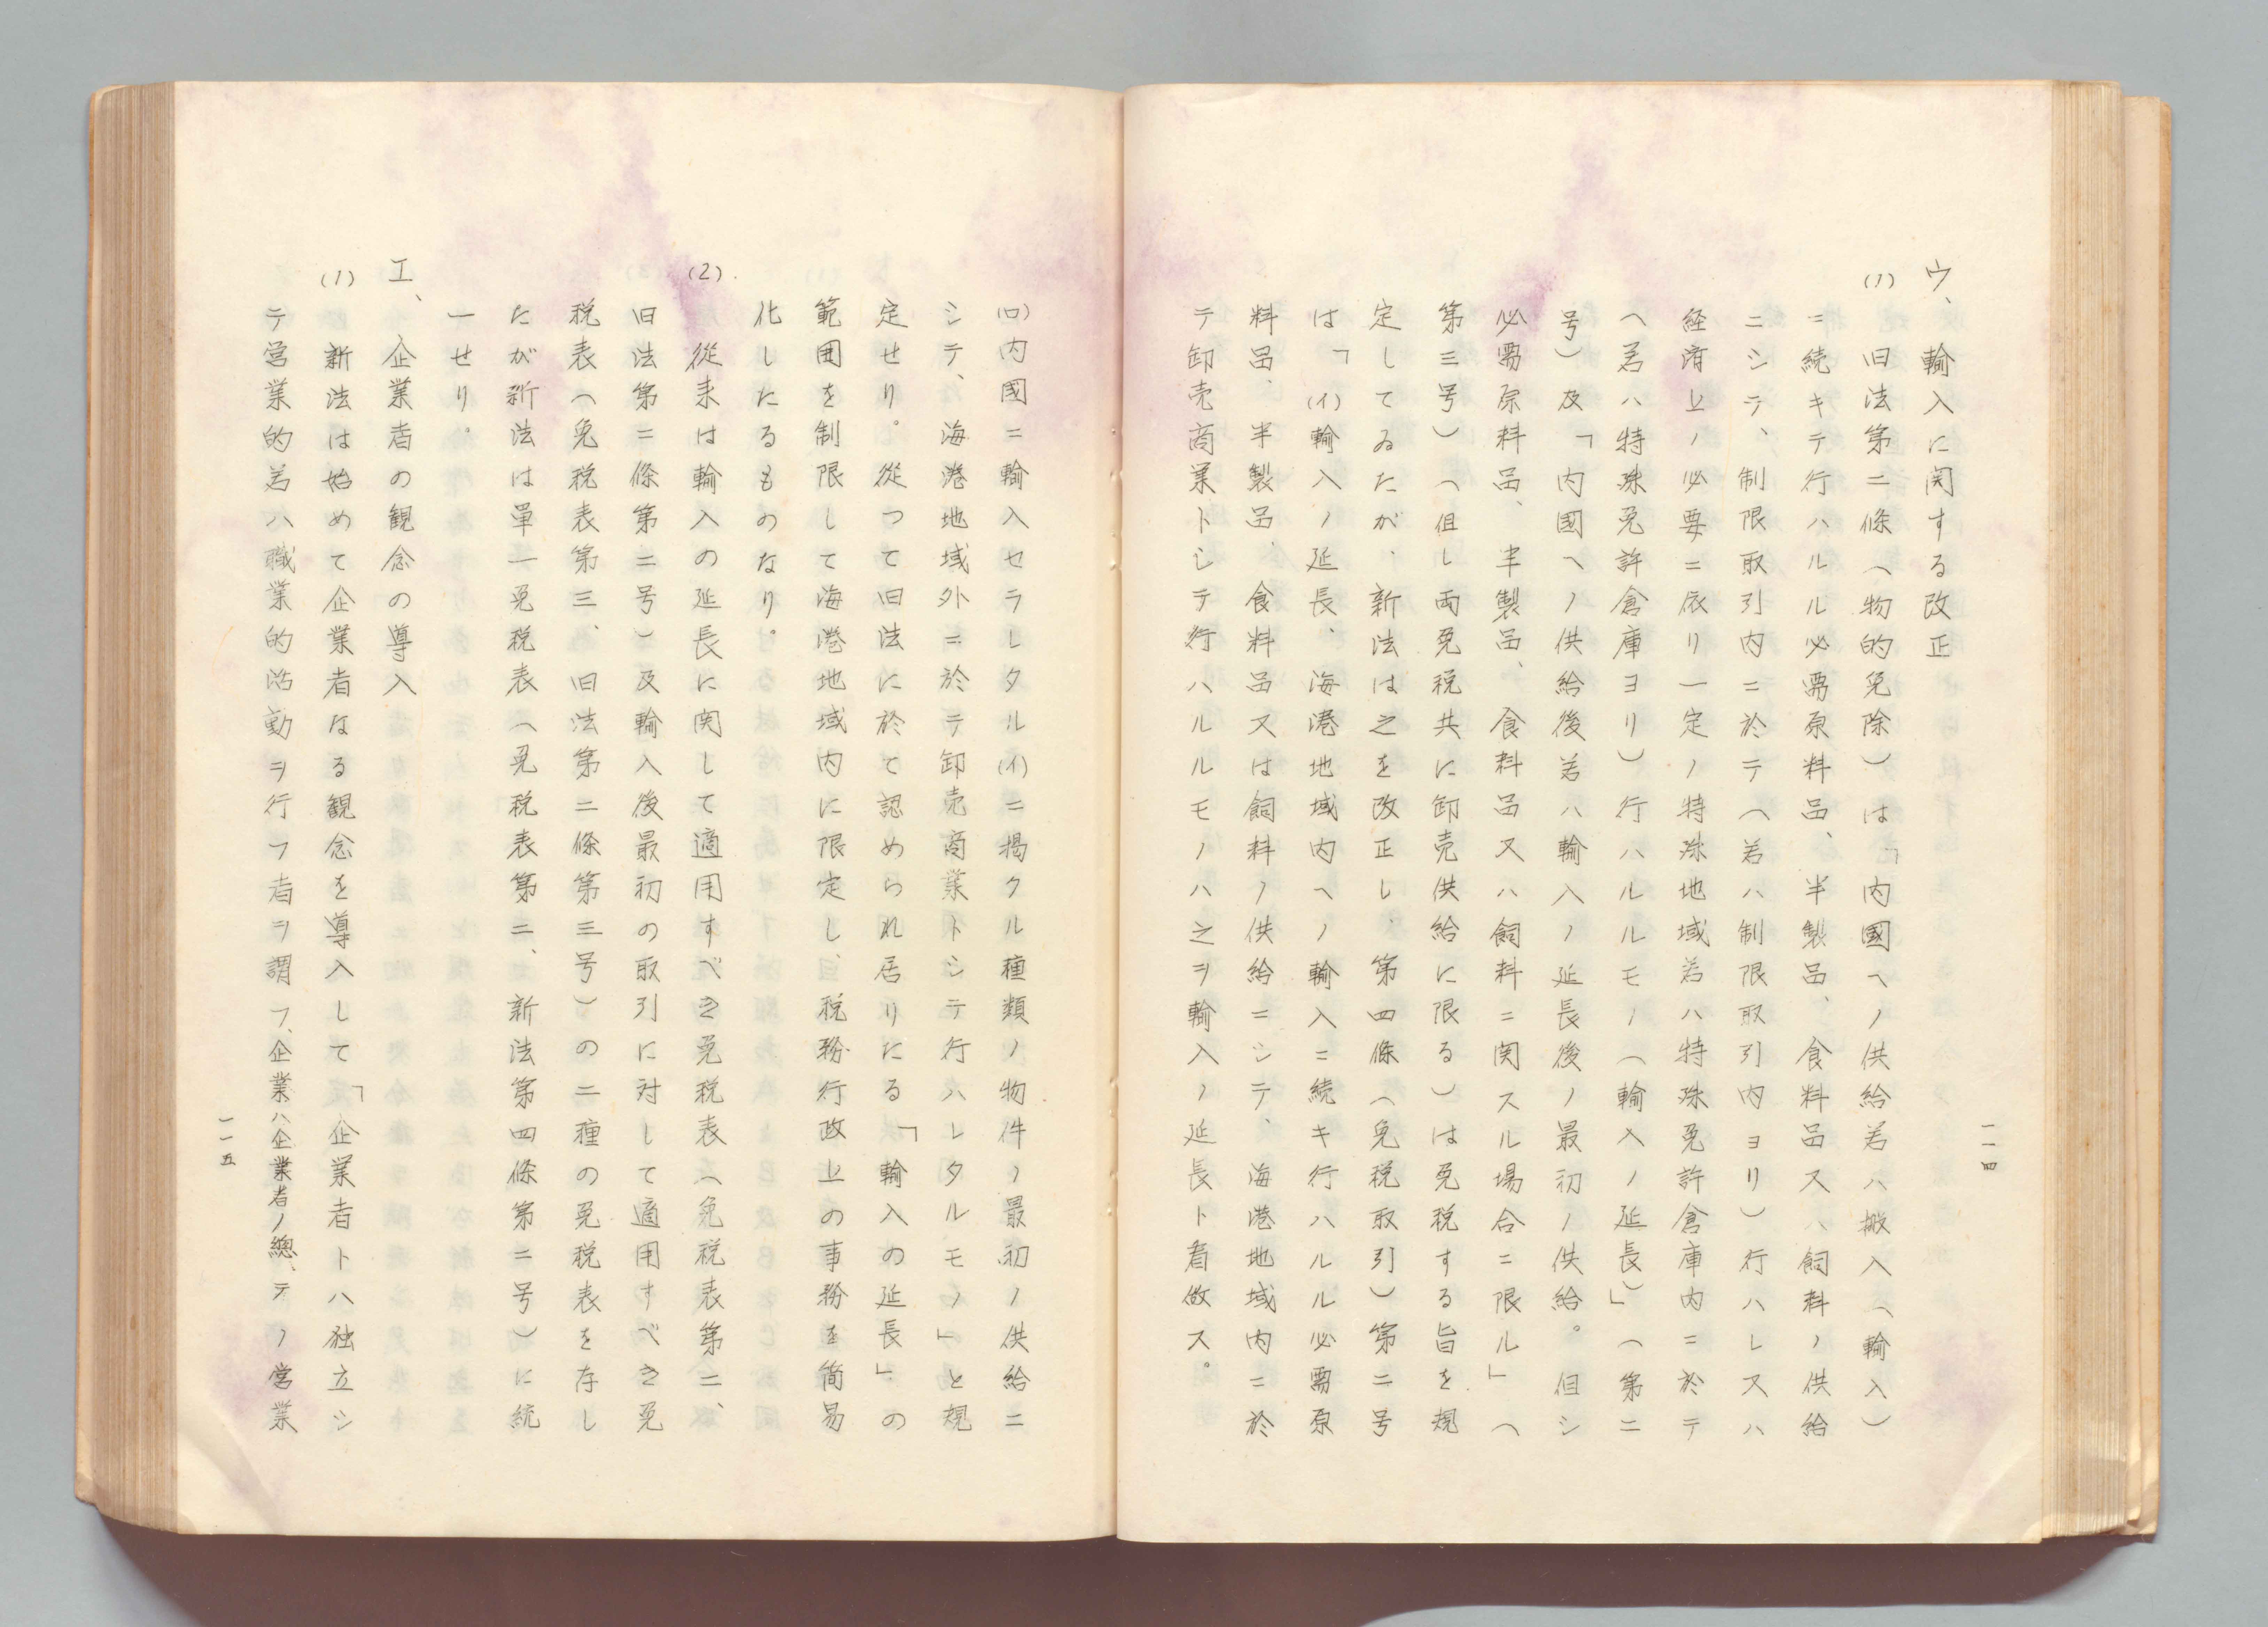 一一四
ウ、輸入に関する改正
(1) 旧法第二條（物的免除）は「内國ヘノ供給若ハ搬入（輸入）
ニ続キテ行ハルル必需原料品、半製品、食料品又ハ飼料ノ供給
ニシテ、制限取引内ニ於テ（若ハ制限取引内ヨリ）行ハレ又ハ
経済上ノ必要ニ依リ一定ノ特殊地域若ハ特殊免許倉庫内ニ於テ
（若ハ特殊免許倉庫ヨリ）行ハルルモノ（輸入ノ延長）」（第二
号）及「内國ヘノ供給後若ハ輸入ノ延長後ノ最初ノ供給。但シ
必需原料品、半製品、食料品又ハ飼料ニ関スル場合ニ限ル」（
第三号）（但し両免税共に卸売供給に限る）は免税する旨を規
定してゐたが、新法は之を改正し、第四條（免税取引）第二号
は「(イ)輸入ノ延長、海港地域内ヘノ輸入ニ続キ行ハルル必需原
料品、半製品、食料品又は飼料ノ供給ニシテ、海港地域内ニ於
テ卸売商業トシテ行ハルルモノハ之ヲ輸入ノ延長ト看做ス。
(ロ)内國ニ輸入セラレタル(イ)ニ掲クル種類ノ物件ノ最初ノ供給ニ
シテ、海港地域外ニ於テ卸売商業トシテ行ハレタルモノ」と規
定せり。従つて旧法に於て認められ居りたる「輸入の延長」の
範囲を制限して海港地域内に限定し、税務行政上の事務を簡易
化したるものなり。
(2) 従来は輸入の延長に関して適用すべき免税表（免税表第二、
旧法第二條第二号）及輸入後最初の取引に対して適用すべき免
税表（免税表第三、旧法第二條第三号）の二種の免税表を存し
たが新法は単一免税表（免税表第二、新法第四條第二号）に統
一せり。
エ、企業者の観念の導入
(1) 新法は始めて企業者なる観念を導入して「企業者トハ独立シ
テ営業的若ハ職業的活動ヲ行フ者ヲ謂フ、企業ハ企業者ノ總テノ営業
一一五